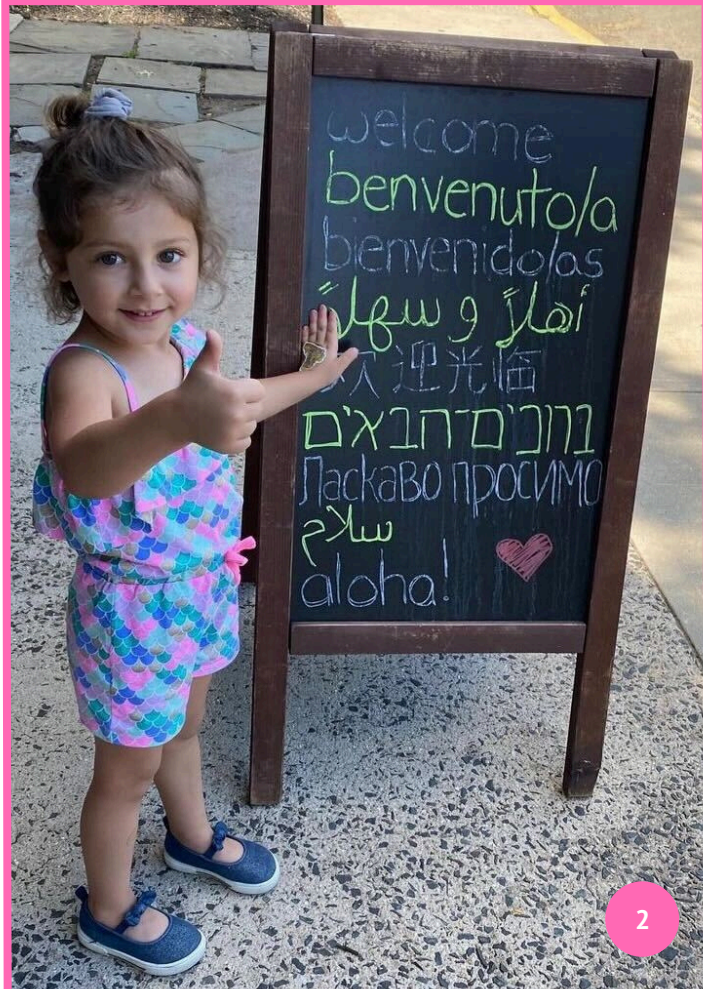 welcome
benvenuto/a
bienvenido/as
أهلاً و سهلاً
欢迎光临
ברוכים־הבאים
Ласкаво просимо
سلام
aloha!
2